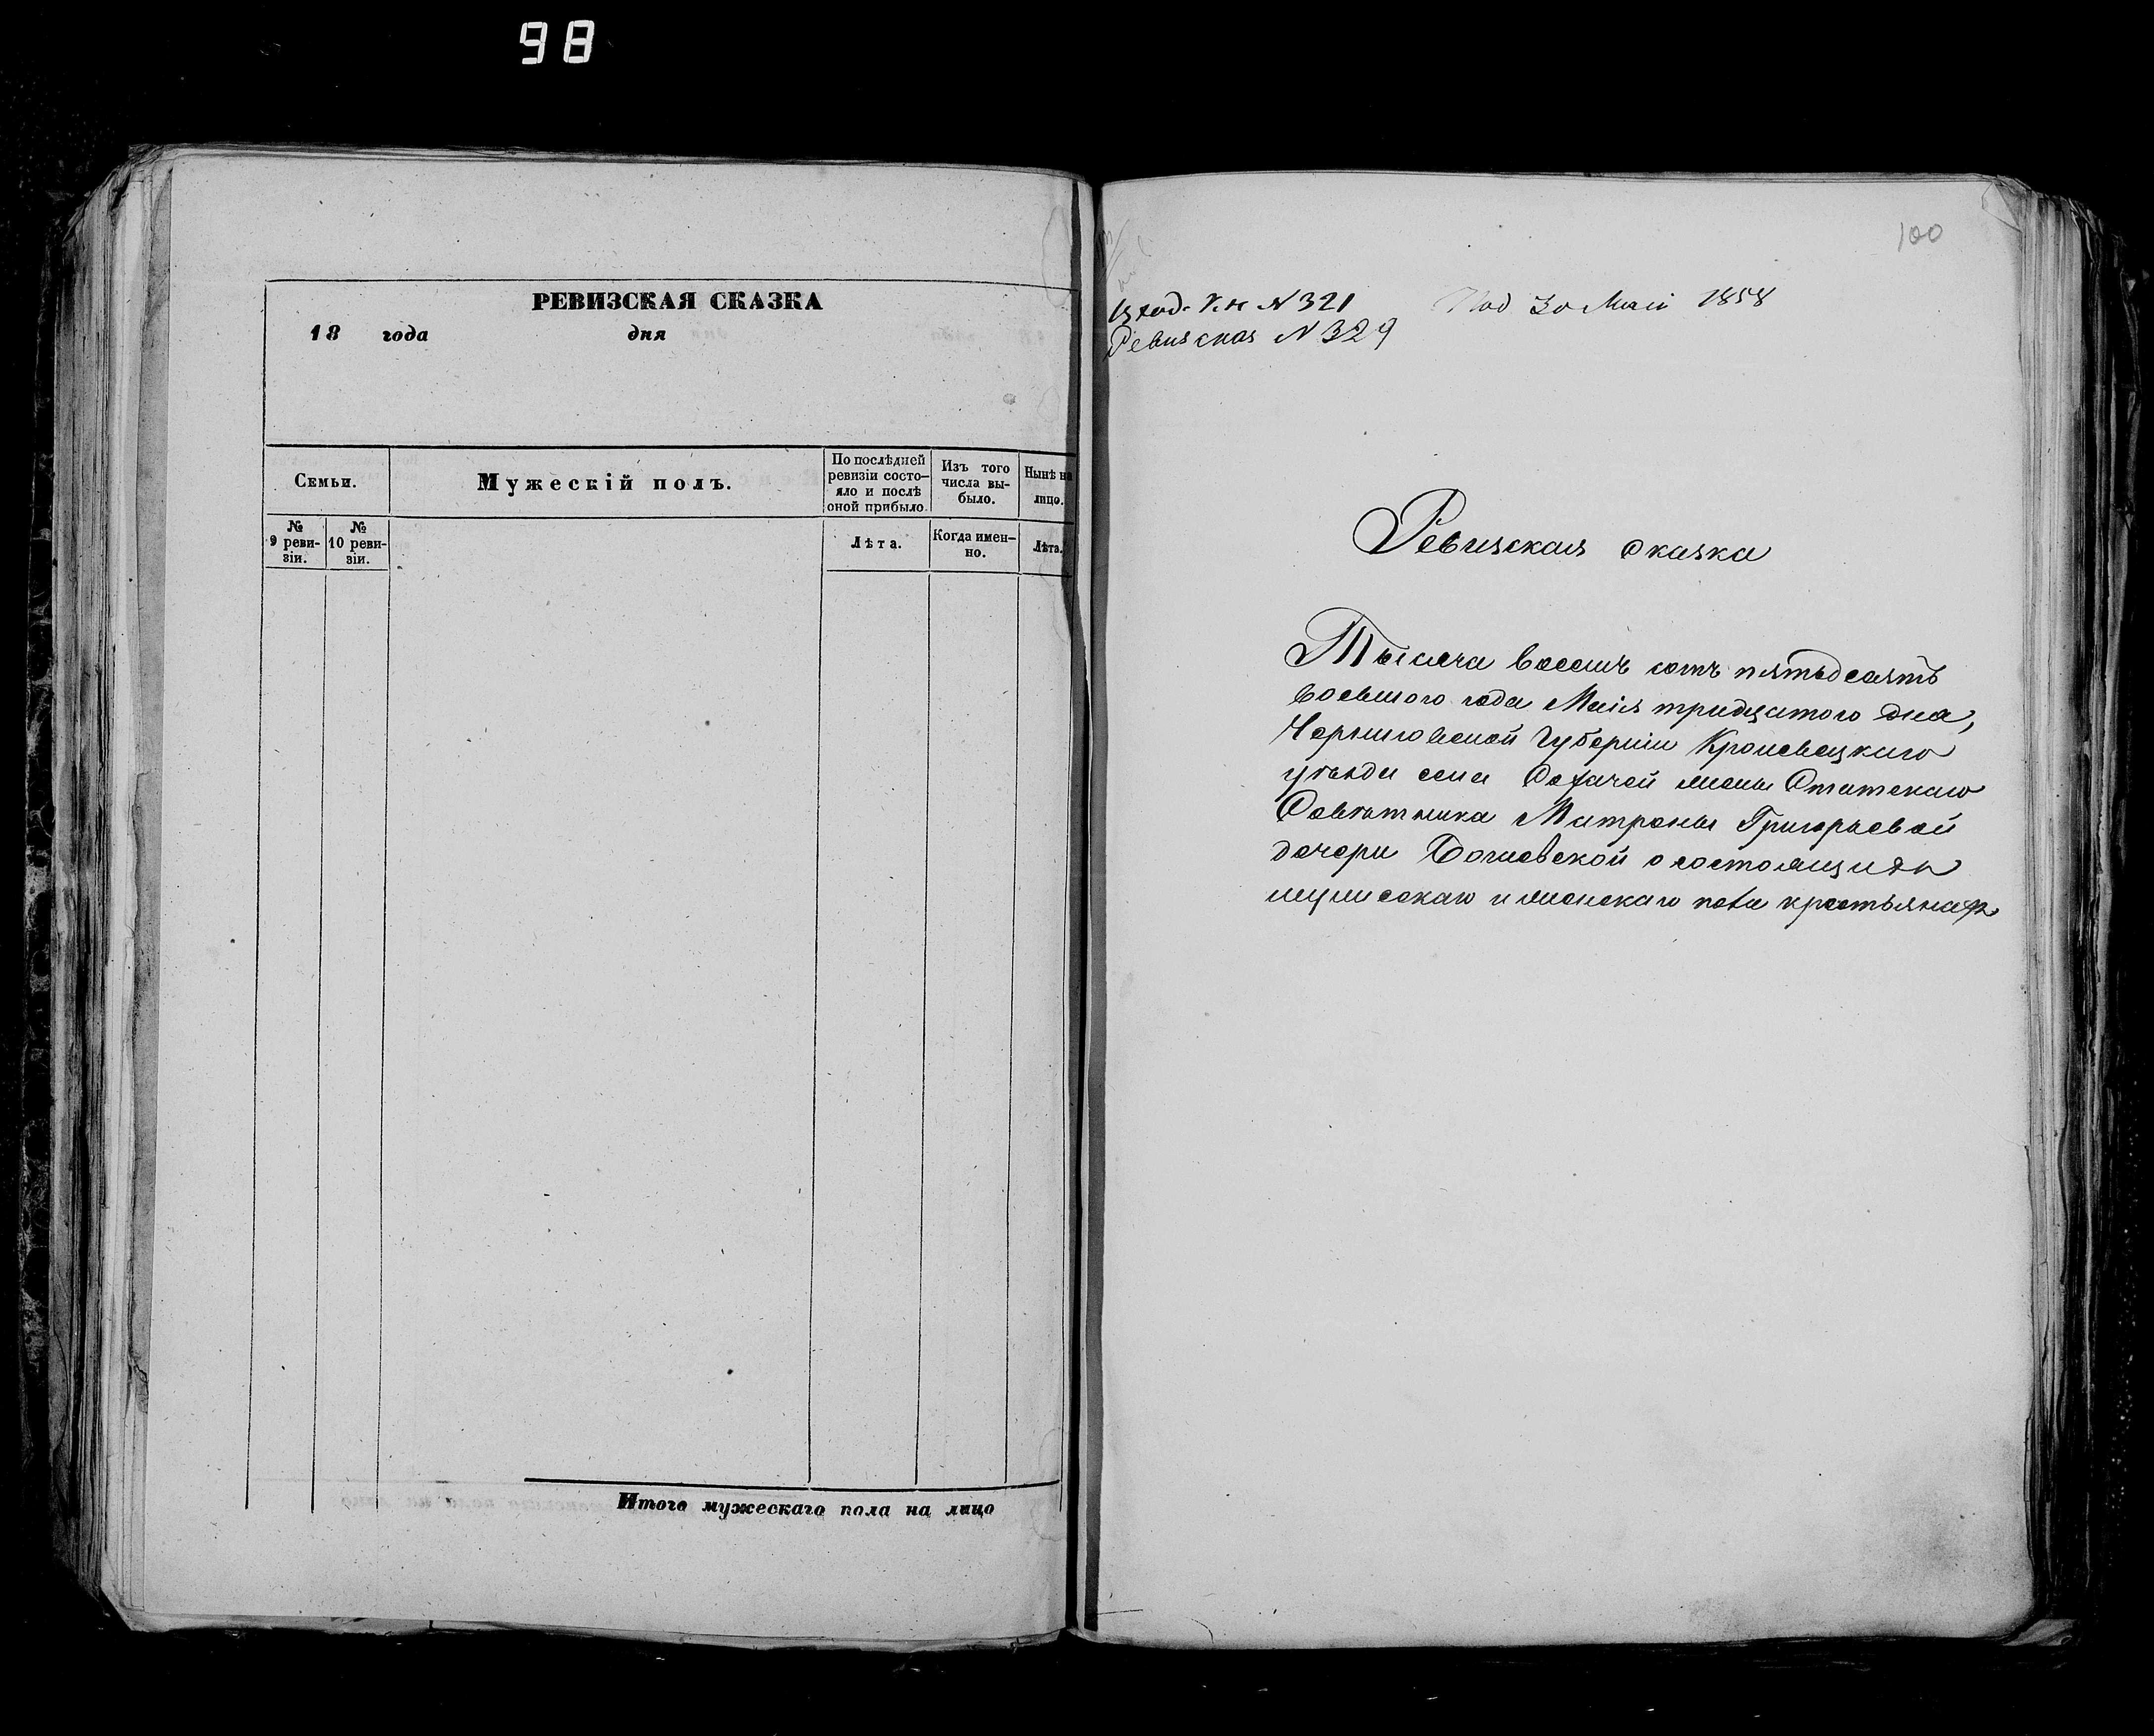 98
РЕВИЗСКАЯ СКАЗКА
18 года дня
Семьи.
Мужескій полъ.
По послѣдней ревизіи состо-
яло и послѣ оной прибыло.
Изъ того числа вы-
было.
Нынѣ на лицо.
№ 9 реви-
зіи.
№ 10 реви-
зіи.
Лѣта.
Когда имен-
но.
Лѣта.
Итого мужескаго пола на лицо
100
Вход. N 321
Под 30 Маія 1858
Ревизская N 329
Ревизская сказка
Тысяча восемъ сотъ пятьдесятъ
восьмого года Маія тридцатого дня,
Черниговской Губерніи Кролевецкаго
уѣзда села жены Статскаго
Совѣтника Матроны Григорьевой
дочери о состоящихъ
мужескаго и женскаго пола крестьянахъ